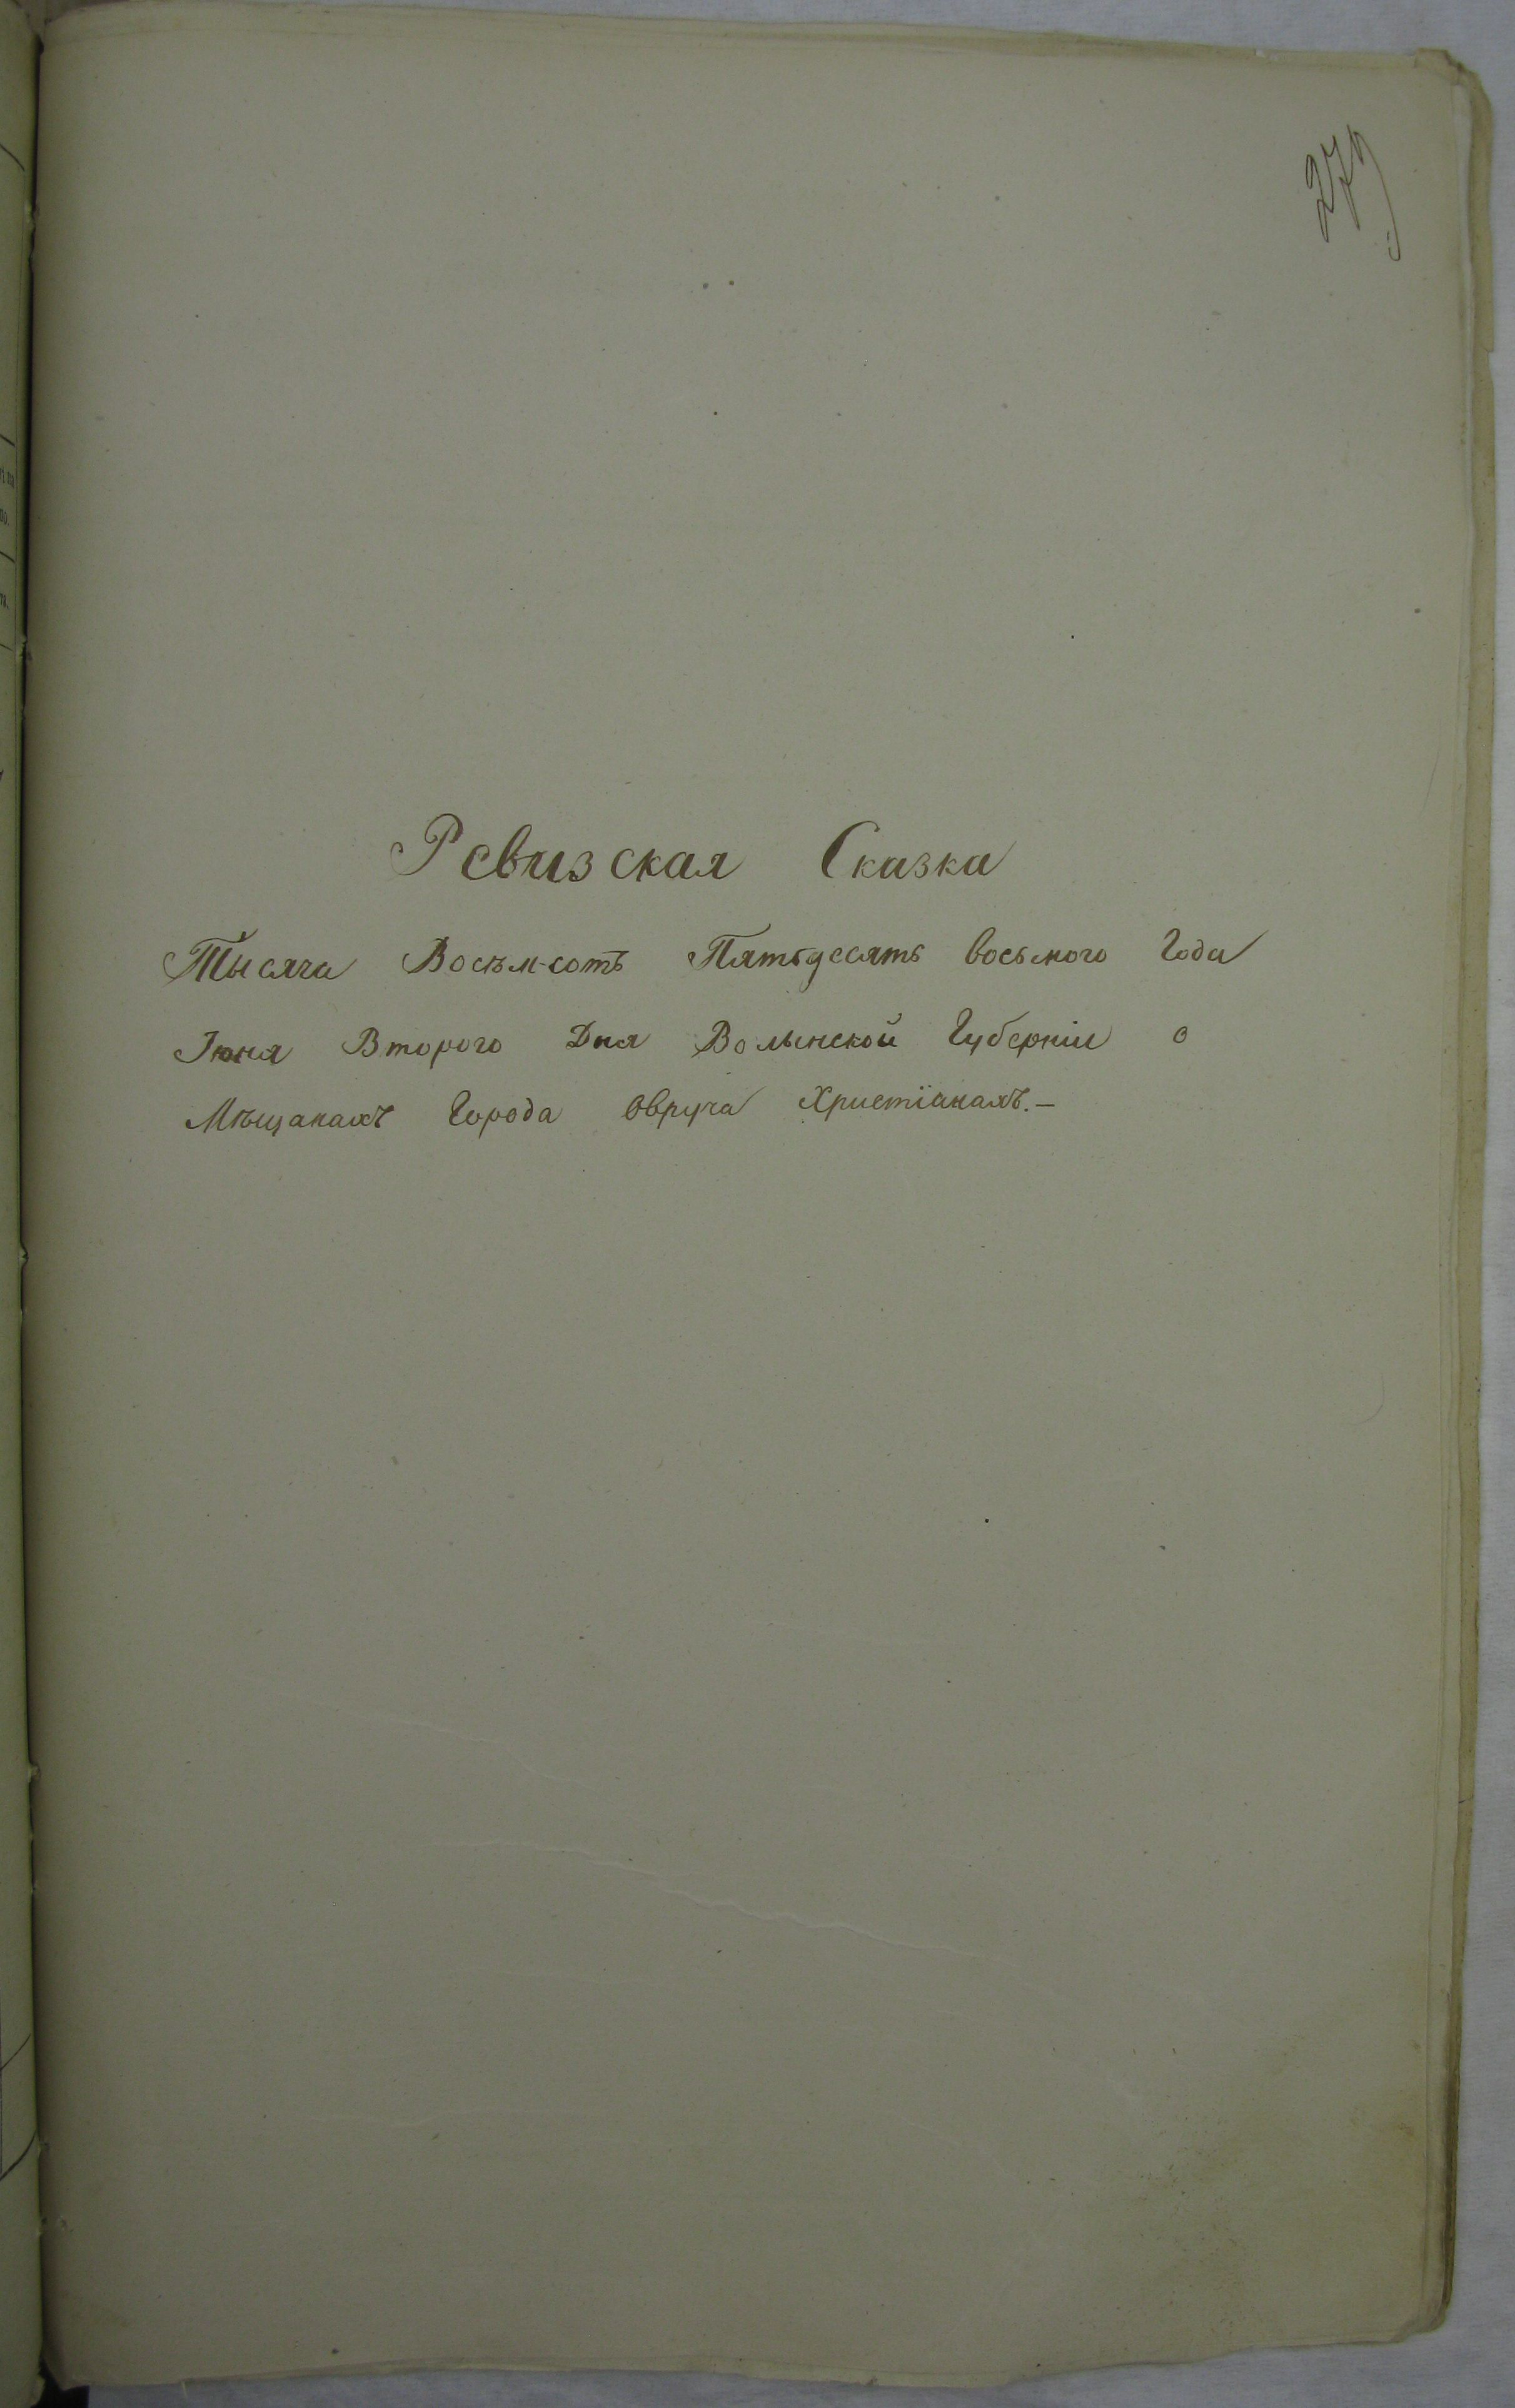 279
Ревизская Сказка
Тысяча Восѣм-сотъ Пятьдесять восьмого Года
Іюня Второго Дня Волынской Губерніи о
Мѣщанахъ Города Овруча Христіанахъ.—